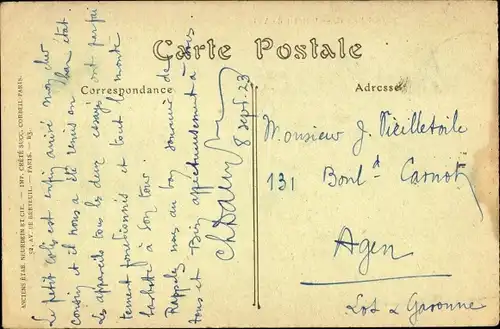 Carte Postale
Correspondance
Adresse
Le petit colis est enfin arrivé mon cher
cousin et il nous a été remis en bon état.
Les appareils tous les deux essayés ont parfai
tement fonctionnés et tout le monde
barbotte à son tour.
Rappelez nous au bon souvenir de
tous et Bien affectueusement à vous
8 sept. 23
Monsieur J. Vieilletoile
131 Boul.d Carnot
Agen
Lot & Garonne
ANCIENS ÉTAB. NEURDEIN ET CIE. — IMP. CRÉTÉ SUCC. CORBEIL-PARIS.
52, AV. DE BRETEUIL. — PARIS.